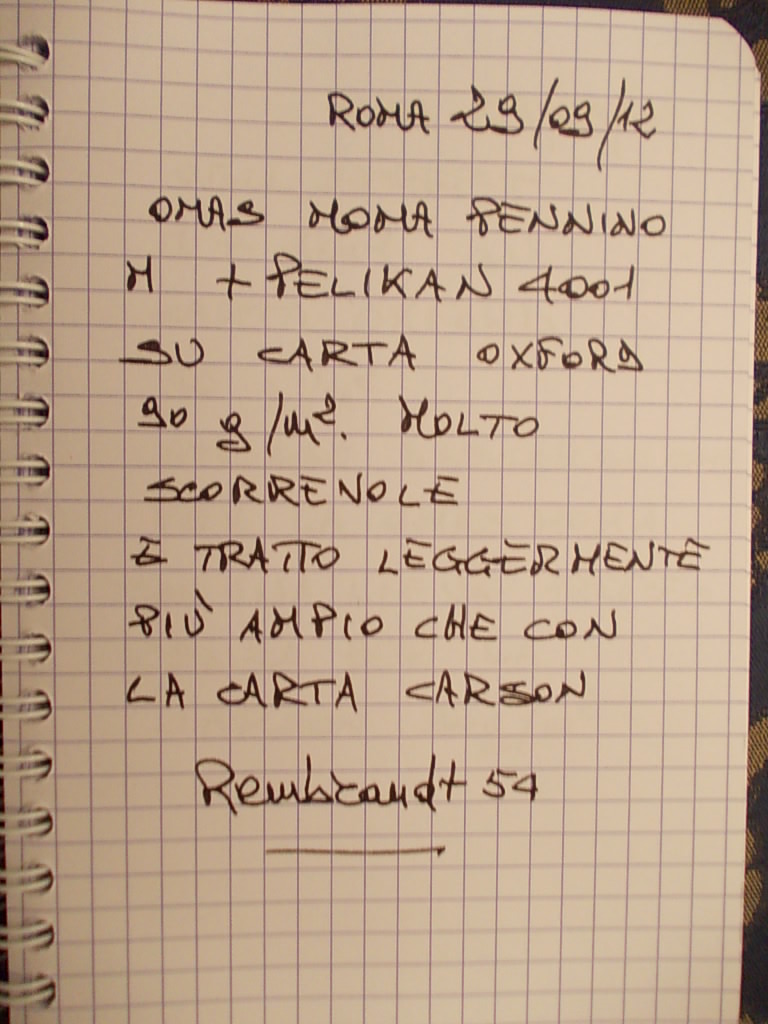 ROMA 29/09/12
OMAS MOMA PENNINO
M + PELIKAN 4001
SU CARTA OXFORD
90 g/m². MOLTO
SCORREVOLE
E TRATTO LEGGERMENTE
PIÙ AMPIO CHE CON
LA CARTA CARSON
Rembrandt 54